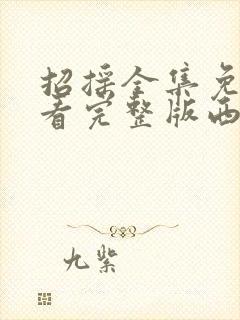 招摇全集免
看完整版西
九紫